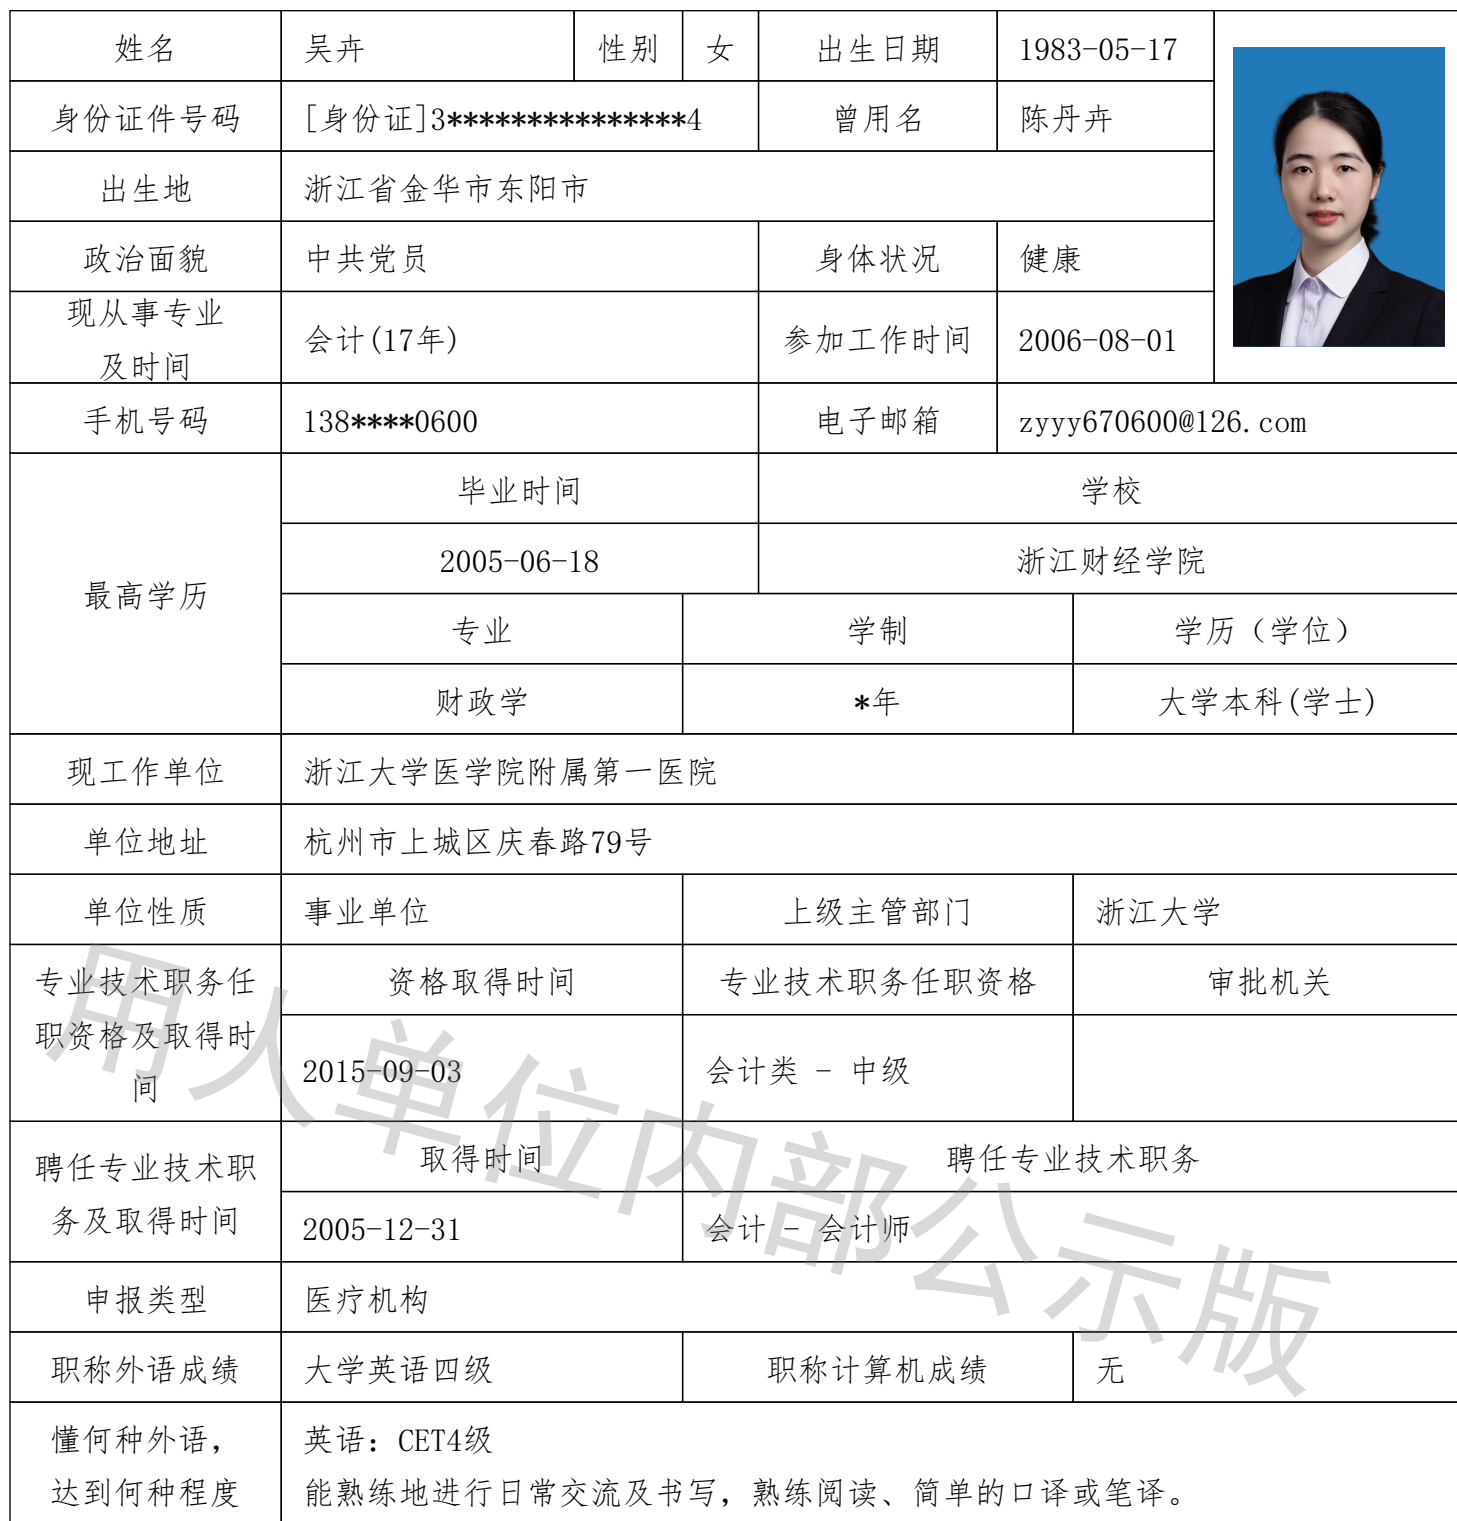 姓名 吴卉 性别 女 出生日期 1983-05-17
身份证件号码 [身份证]3***************4 曾用名 陈丹卉
出生地 浙江省金华市东阳市
政治面貌 中共党员 身体状况 健康
现从事专业
及时间
会计(17年) 参加工作时间 2006-08-01
手机号码 138****0600 电子邮箱 zyyy670600@126.com
最高学历
毕业时间 学校
2005-06-18 浙江财经学院
专业 学制 学历（学位）
财政学 *年 大学本科(学士)
现工作单位 浙江大学医学院附属第一医院
单位地址 杭州市上城区庆春路79号
单位性质 事业单位 上级主管部门 浙江大学
专业技术职务任
职资格及取得时
间
资格取得时间 专业技术职务任职资格 审批机关
2015-09-03 会计类 - 中级
聘任专业技术职
务及取得时间
取得时间 聘任专业技术职务
2005-12-31 会计 - 会计师
申报类型 医疗机构
职称外语成绩 大学英语四级 职称计算机成绩 无
懂何种外语，
达到何种程度
英语：CET4级
能熟练地进行日常交流及书写，熟练阅读、简单的口译或笔译。
用人单位内部公示版